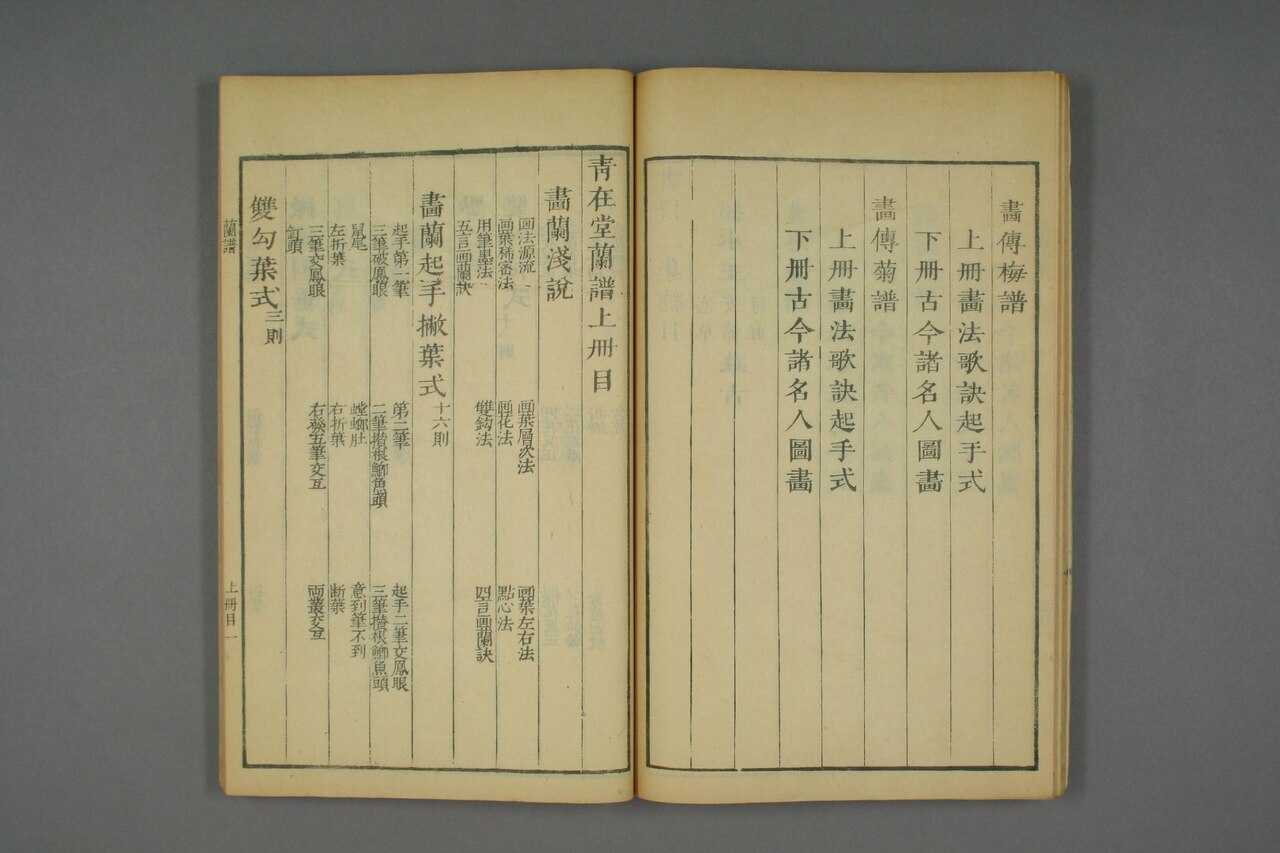 畫傳梅譜
上冊畫法歌訣起手式
下冊古今諸名人圖畫
畫傳菊譜
上冊畫法歌訣起手式
下冊古今諸名人圖畫
青在堂蘭譜上冊目
畫蘭淺說
画法源流 画葉層次法 画葉左右法
画葉稀密法 画花法 點心法
用筆墨法 雙鈎法 四言画蘭訣
五言画蘭訣
畫蘭起手撇葉式 十六則
起手第一筆 第二筆 起手二筆交鳳眼
三筆破鳳眼 二筆攢根鯽魚頭 三筆攢根鯽魚頭
鼠尾 螳螂肚 意到筆不到
左折葉 右折葉 断葉
三筆交鳳眼 右發五筆交互 両叢交互
釘頭
雙勾葉式 三則
蘭譜 上冊目 一